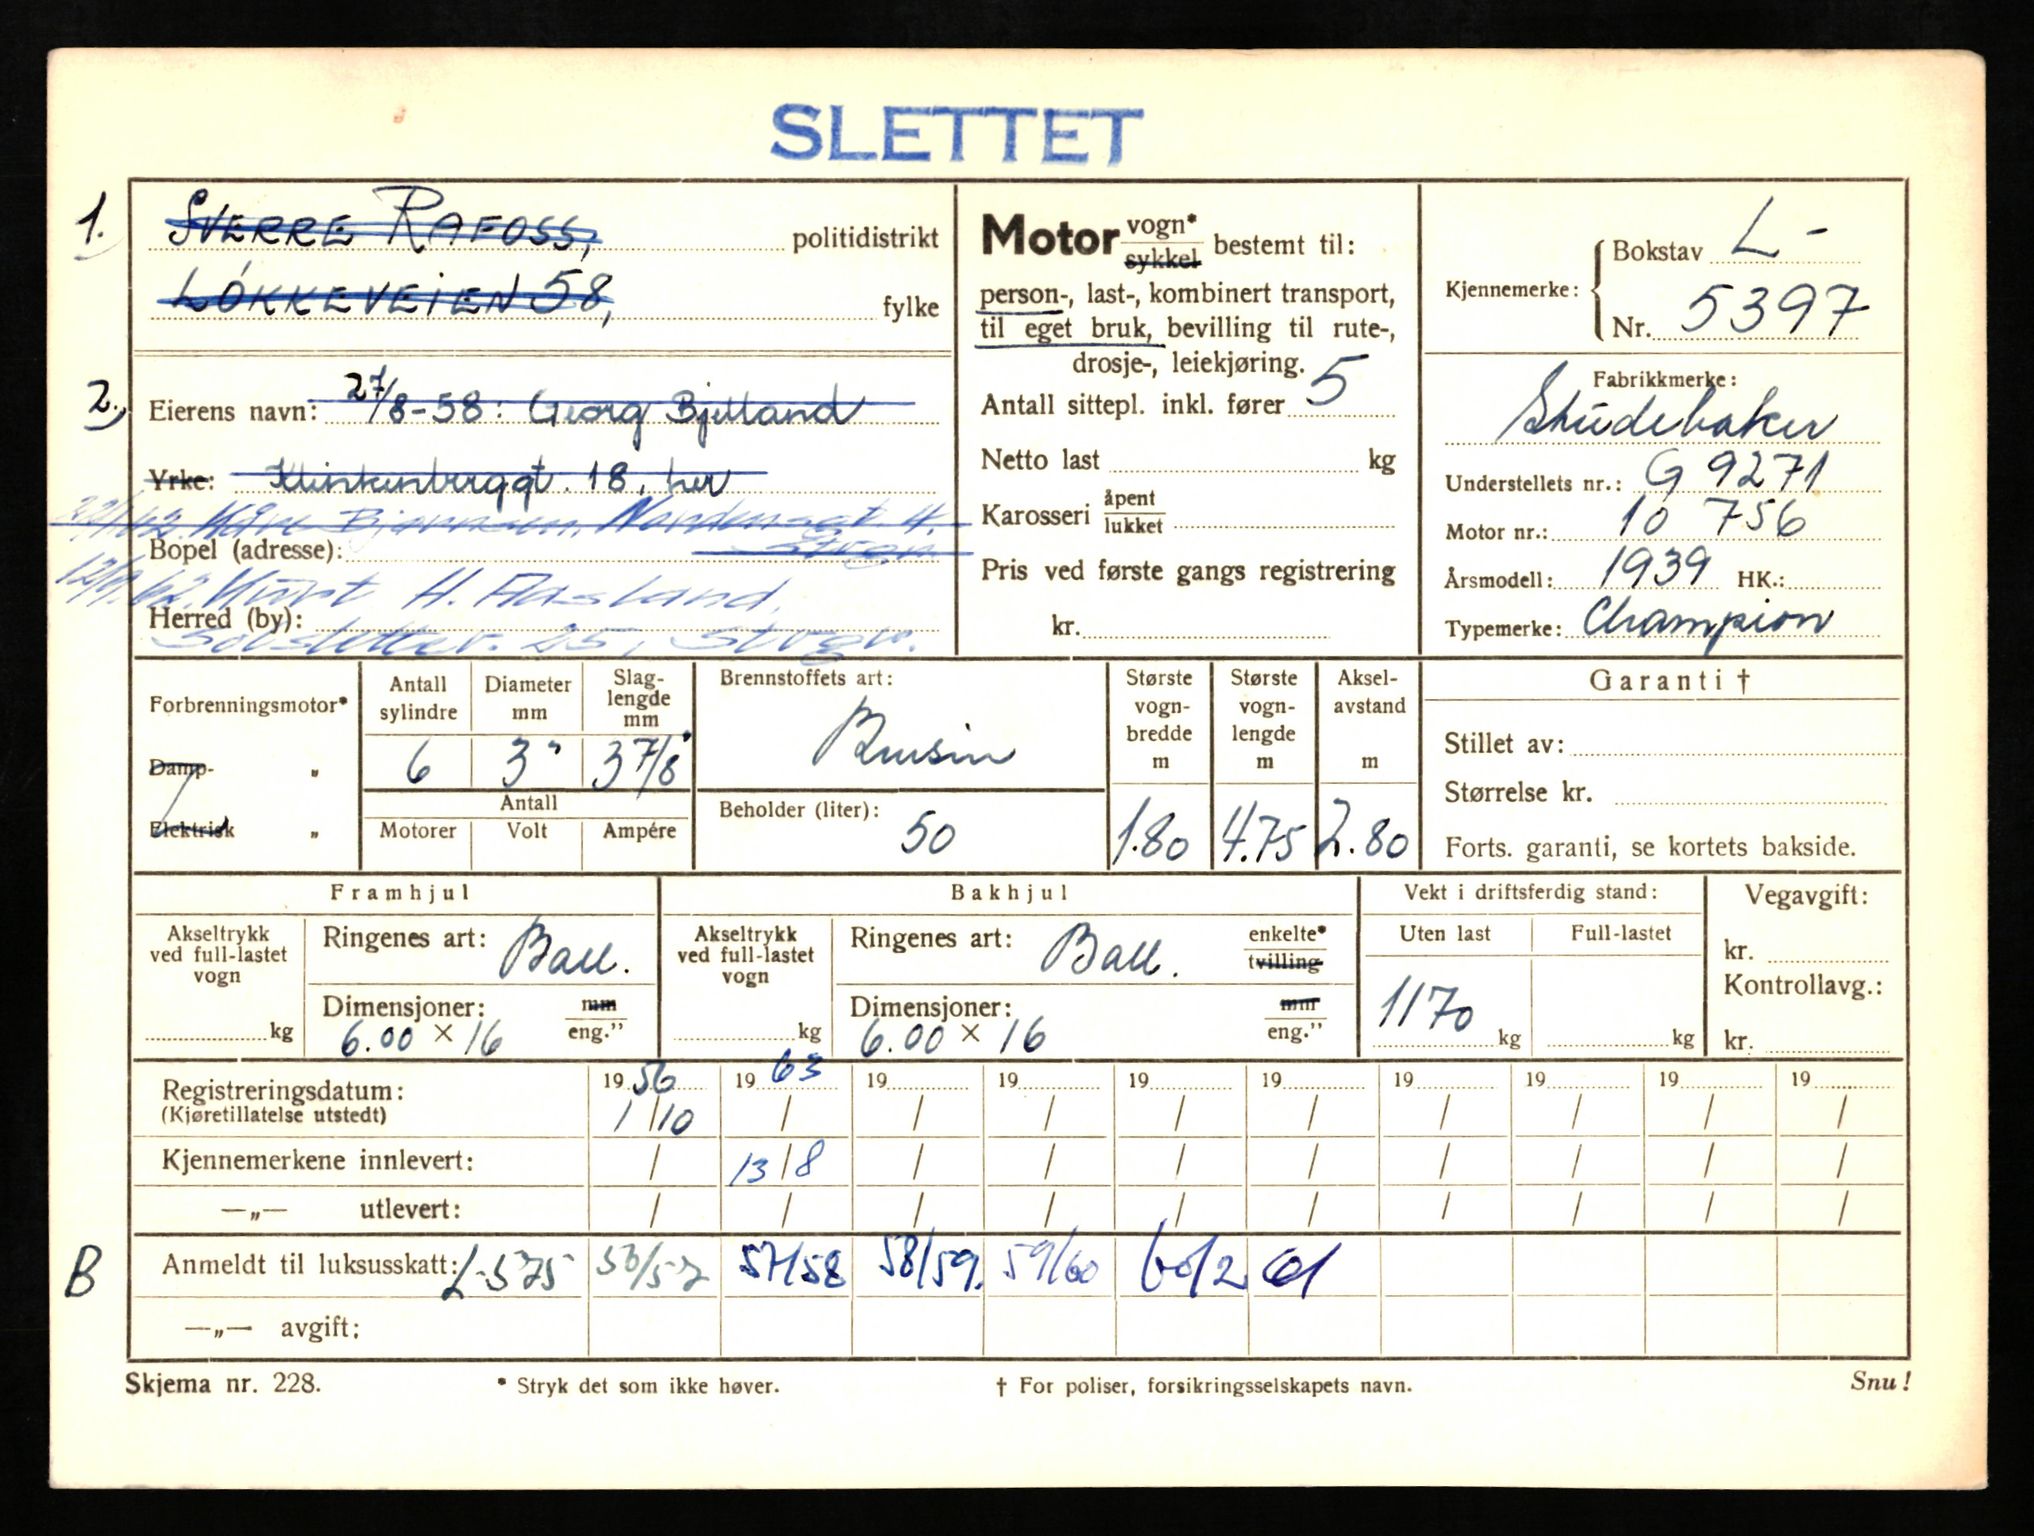 SLETTET
1. SVERRE RAFOSS, politidistrikt
LÖKKEVEIEN 58, fylke
2. Eierens navn: 27/8-58: Georg Bjelland
Yrke: Klinkenberggt. 18, her
62. Kåre Bjørnsen, 4.
Stvgr.
Bopel (adresse):
62. Kurt H. Aasland.
Herred (by):
Solsletten. 25, Stvgr.
Motor vogn* sykkel bestemt til:
person-, last-, kombinert transport,
til eget bruk, bevilling til rute-,
drosje-, leiekjøring.
Antall sittepl. inkl. fører 5
Netto last kg
Karosseri åpent lukket
Pris ved første gangs registrering
kr.
Kjennemerke: Bokstav L-
Nr. 5397
Fabrikkmerke:
Studebaker
Understellets nr.: G 9271
Motor nr.: 10 756
Årsmodell: 1939 HK.:
Typemerke: Champion
Forbrenningsmotor*
Damp- „
Elektrisk „
Antall sylindre 6
Diameter mm 3"
Slaglengde mm 3 7/8"
Antall
Motorer Volt Ampére
Brennstoffets art:
Bensin
Beholder (liter):
50
Største vognbredde m 1.80
Største vognlengde m 4.75
Akselavstand m 2.80
Garanti †
Stillet av:
Størrelse kr.
Forts. garanti, se kortets bakside.
Framhjul
Akseltrykk ved full-lastet vogn kg
Ringenes art: Ball.
Dimensjoner: mm eng."
6.00 × 16
Bakhjul
Akseltrykk ved full-lastet vogn kg
Ringenes art: Ball. enkelte* tvilling
Dimensjoner: mm eng."
6.00 × 16
Vekt i driftsferdig stand:
Uten last Full-lastet
1170 kg kg
Vegavgift:
kr.
Kontrollavg.:
kr.
Registreringsdatum: 19 56 19 63 19 19 19 19 19 19 19 19
(Kjøretillatelse utstedt) 1/10 / / / / / / / / /
Kjennemerkene innlevert: / 13/8 / / / / / / / /
—„— utlevert: / / / / / / / / / /
B Anmeldt til luksusskatt: L-575 56/57 57/58 58/59. 59/60 60/2 61
—„— avgift:
Skjema nr. 228. * Stryk det som ikke høver. † For poliser, forsikringsselskapets navn. Snu!